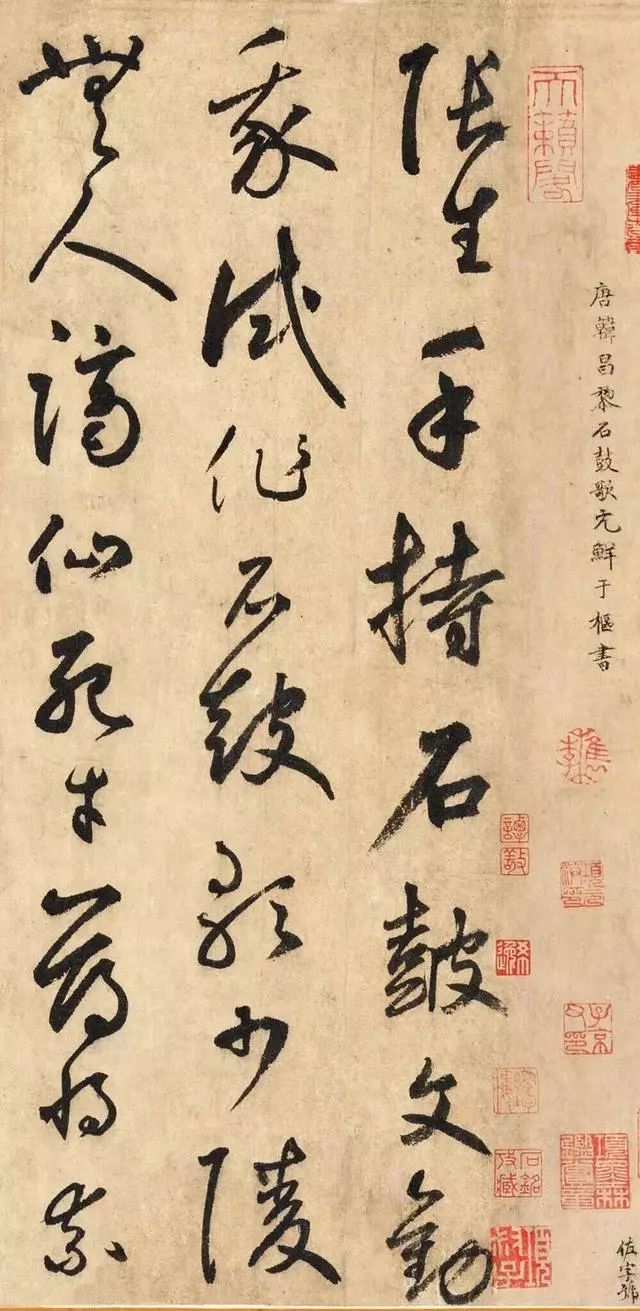 唐韓昌黎石鼓歌元鮮于樞書
張生手持石鼓文勸
我試作石鼓歌少陵
無人謫仙死才薄將奈
天籟閣
子京父印
項墨林鑑賞章